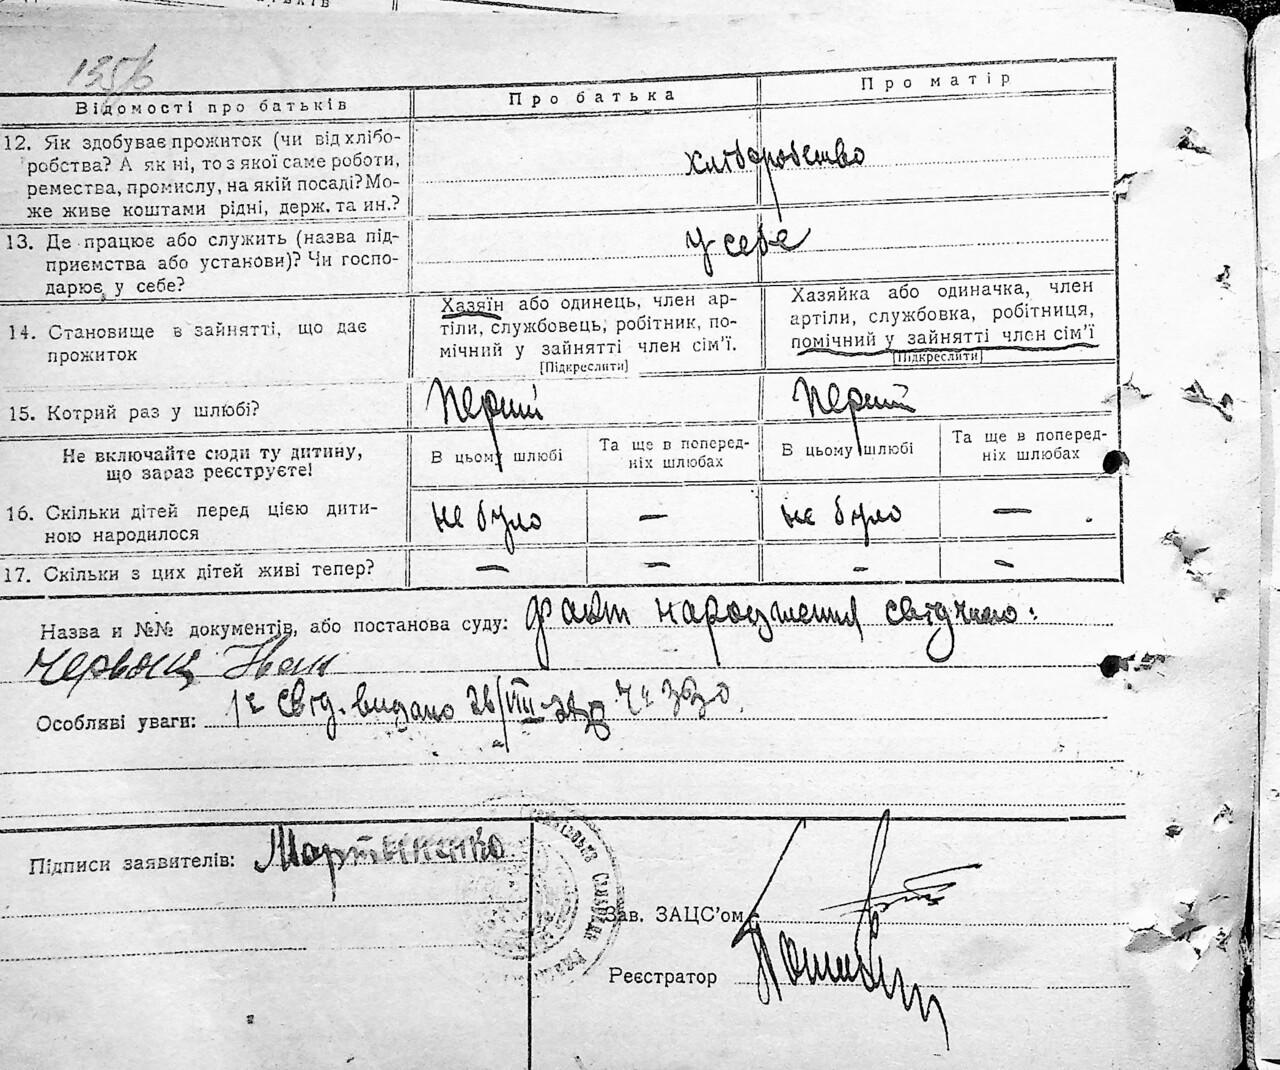 135/6
Відомості про батьків
Про батька
Про матір
12. Як здобуває прожиток (чи від хлібо-
робства? А як ні, то з якої саме роботи,
ремества, промислу, на якій посаді? Мо-
же живе коштами рідні, держ. та ин.?
хліборобство
13. Де працює або служить (назва під-
приємства або установи)? Чи госпо-
дарює у себе?
у себе
14. Становище в зайнятті, що дає
прожиток
Хазяїн або одинець, член ар-
тіли, службовець, робітник, по-
мічний у зайнятті член сім'ї.
[Підкреслити]
Хазяйка або одиначка, член
артіли, службовка, робітниця,
помічний у зайнятті член сім'ї
[Підкреслити]
15. Котрий раз у шлюбі?
Перший
Перший
Не включайте сюди ту дитину,
що зараз реєструєте!
В цьому шлюбі
Та ще в поперед-
ніх шлюбах
В цьому шлюбі
Та ще в поперед-
ніх шлюбах
16. Скільки дітей перед цією дити-
ною народилося
не було
—
не було
—
17. Скільки з цих дітей живі тепер?
—
—
—
—
Назва и №№ документів, або постанова суду: факт народження свідчило:
Червонц Іван
Особливі уваги: 1е свід. видано 26/VIII Че 3630.
Підписи заявителів: Мартыненко
Зав. ЗАЦС'ом
Реєстратор